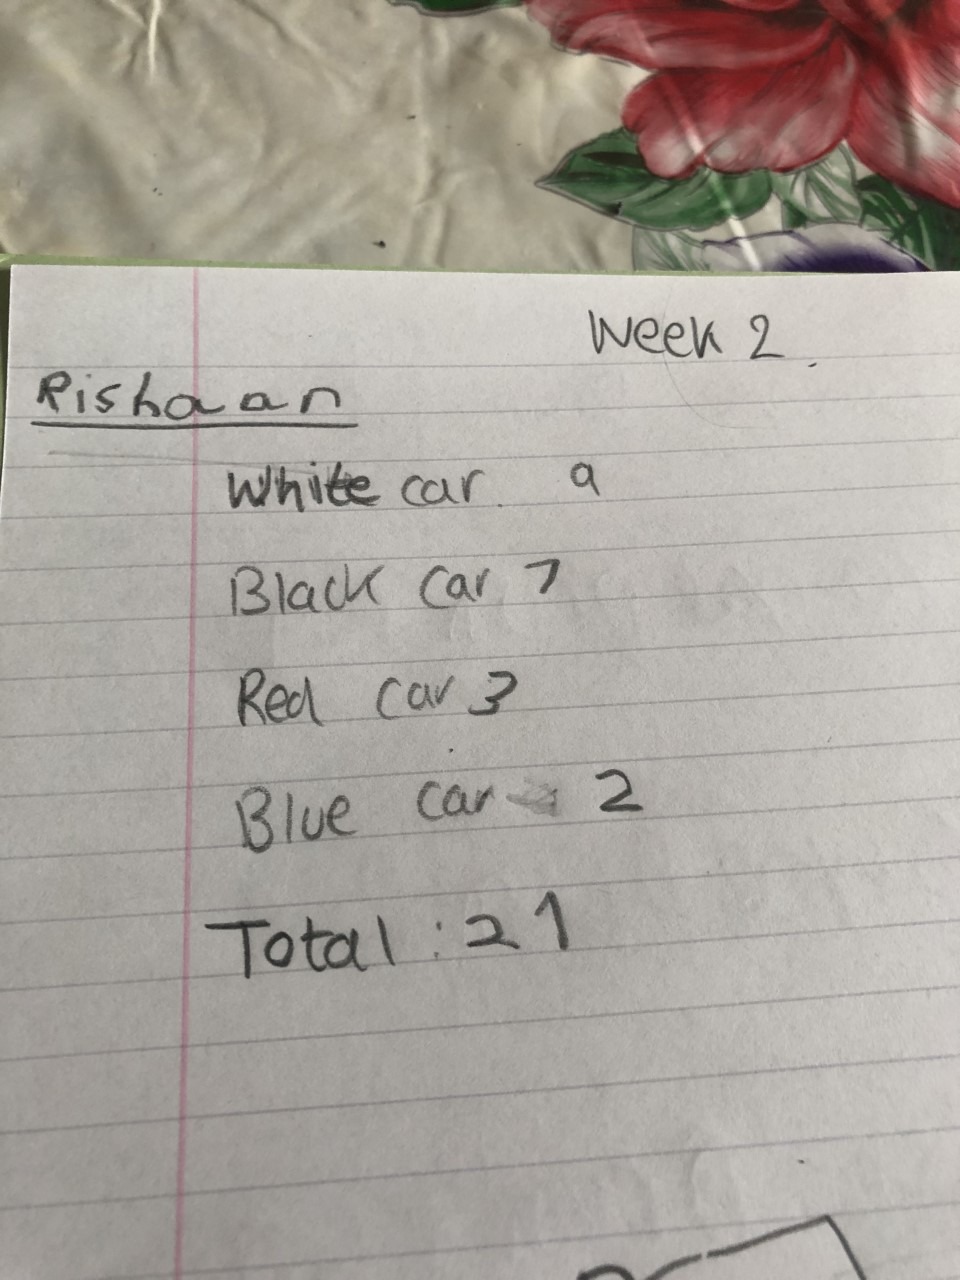 Week 2
Rishaan
White car 9
Black car 7
Red car 3
Blue car 2
Total : 21